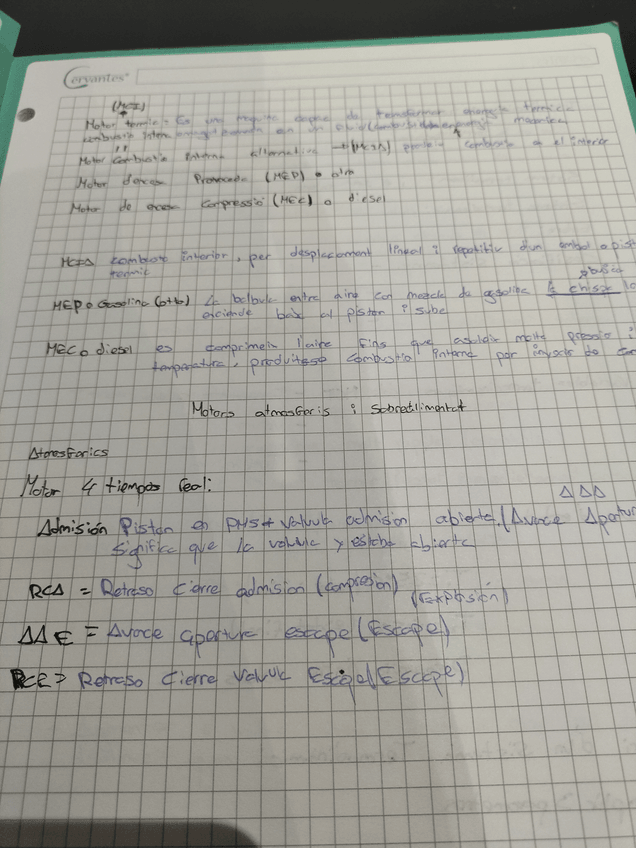 Cervantes
(MCI)
Motor termic = Es una capac de transformar energia termica
combustio interna en un mecanica
Motor combustio interna alternativa → (MCIA) combustio en el interior
Motor d'ences Provocado (MEP) o otto
Motor de ences Compressió (MEC) o diesel
MCIA combustio interior, per desplacament lineal i repetitiu d'un embol o pist
termic
bujia
MEP o Gasolina (otto) La balbula entre aire con mezcla de gasolina & chispa lo
enciende baix al piston i sube
MEC o diesel es comprimeix l'aire fins que assoleix molta pressio i
temperatura, produintese combustio interna por
Motors atmosferis i sobrealimentat
Atmosferics
Motor 4 tiempos real:
AAA
Admisión Piston en PMS + Valvula admision abierta. (Avance Apertur
significa que la valvula ya estaba abierta
RCA = Retraso Cierre admision (compresion)
(Explosión)
AAE = Avance apertura escape (Escape)
RCE = Retraso Cierre Valvula Escape (Escape)